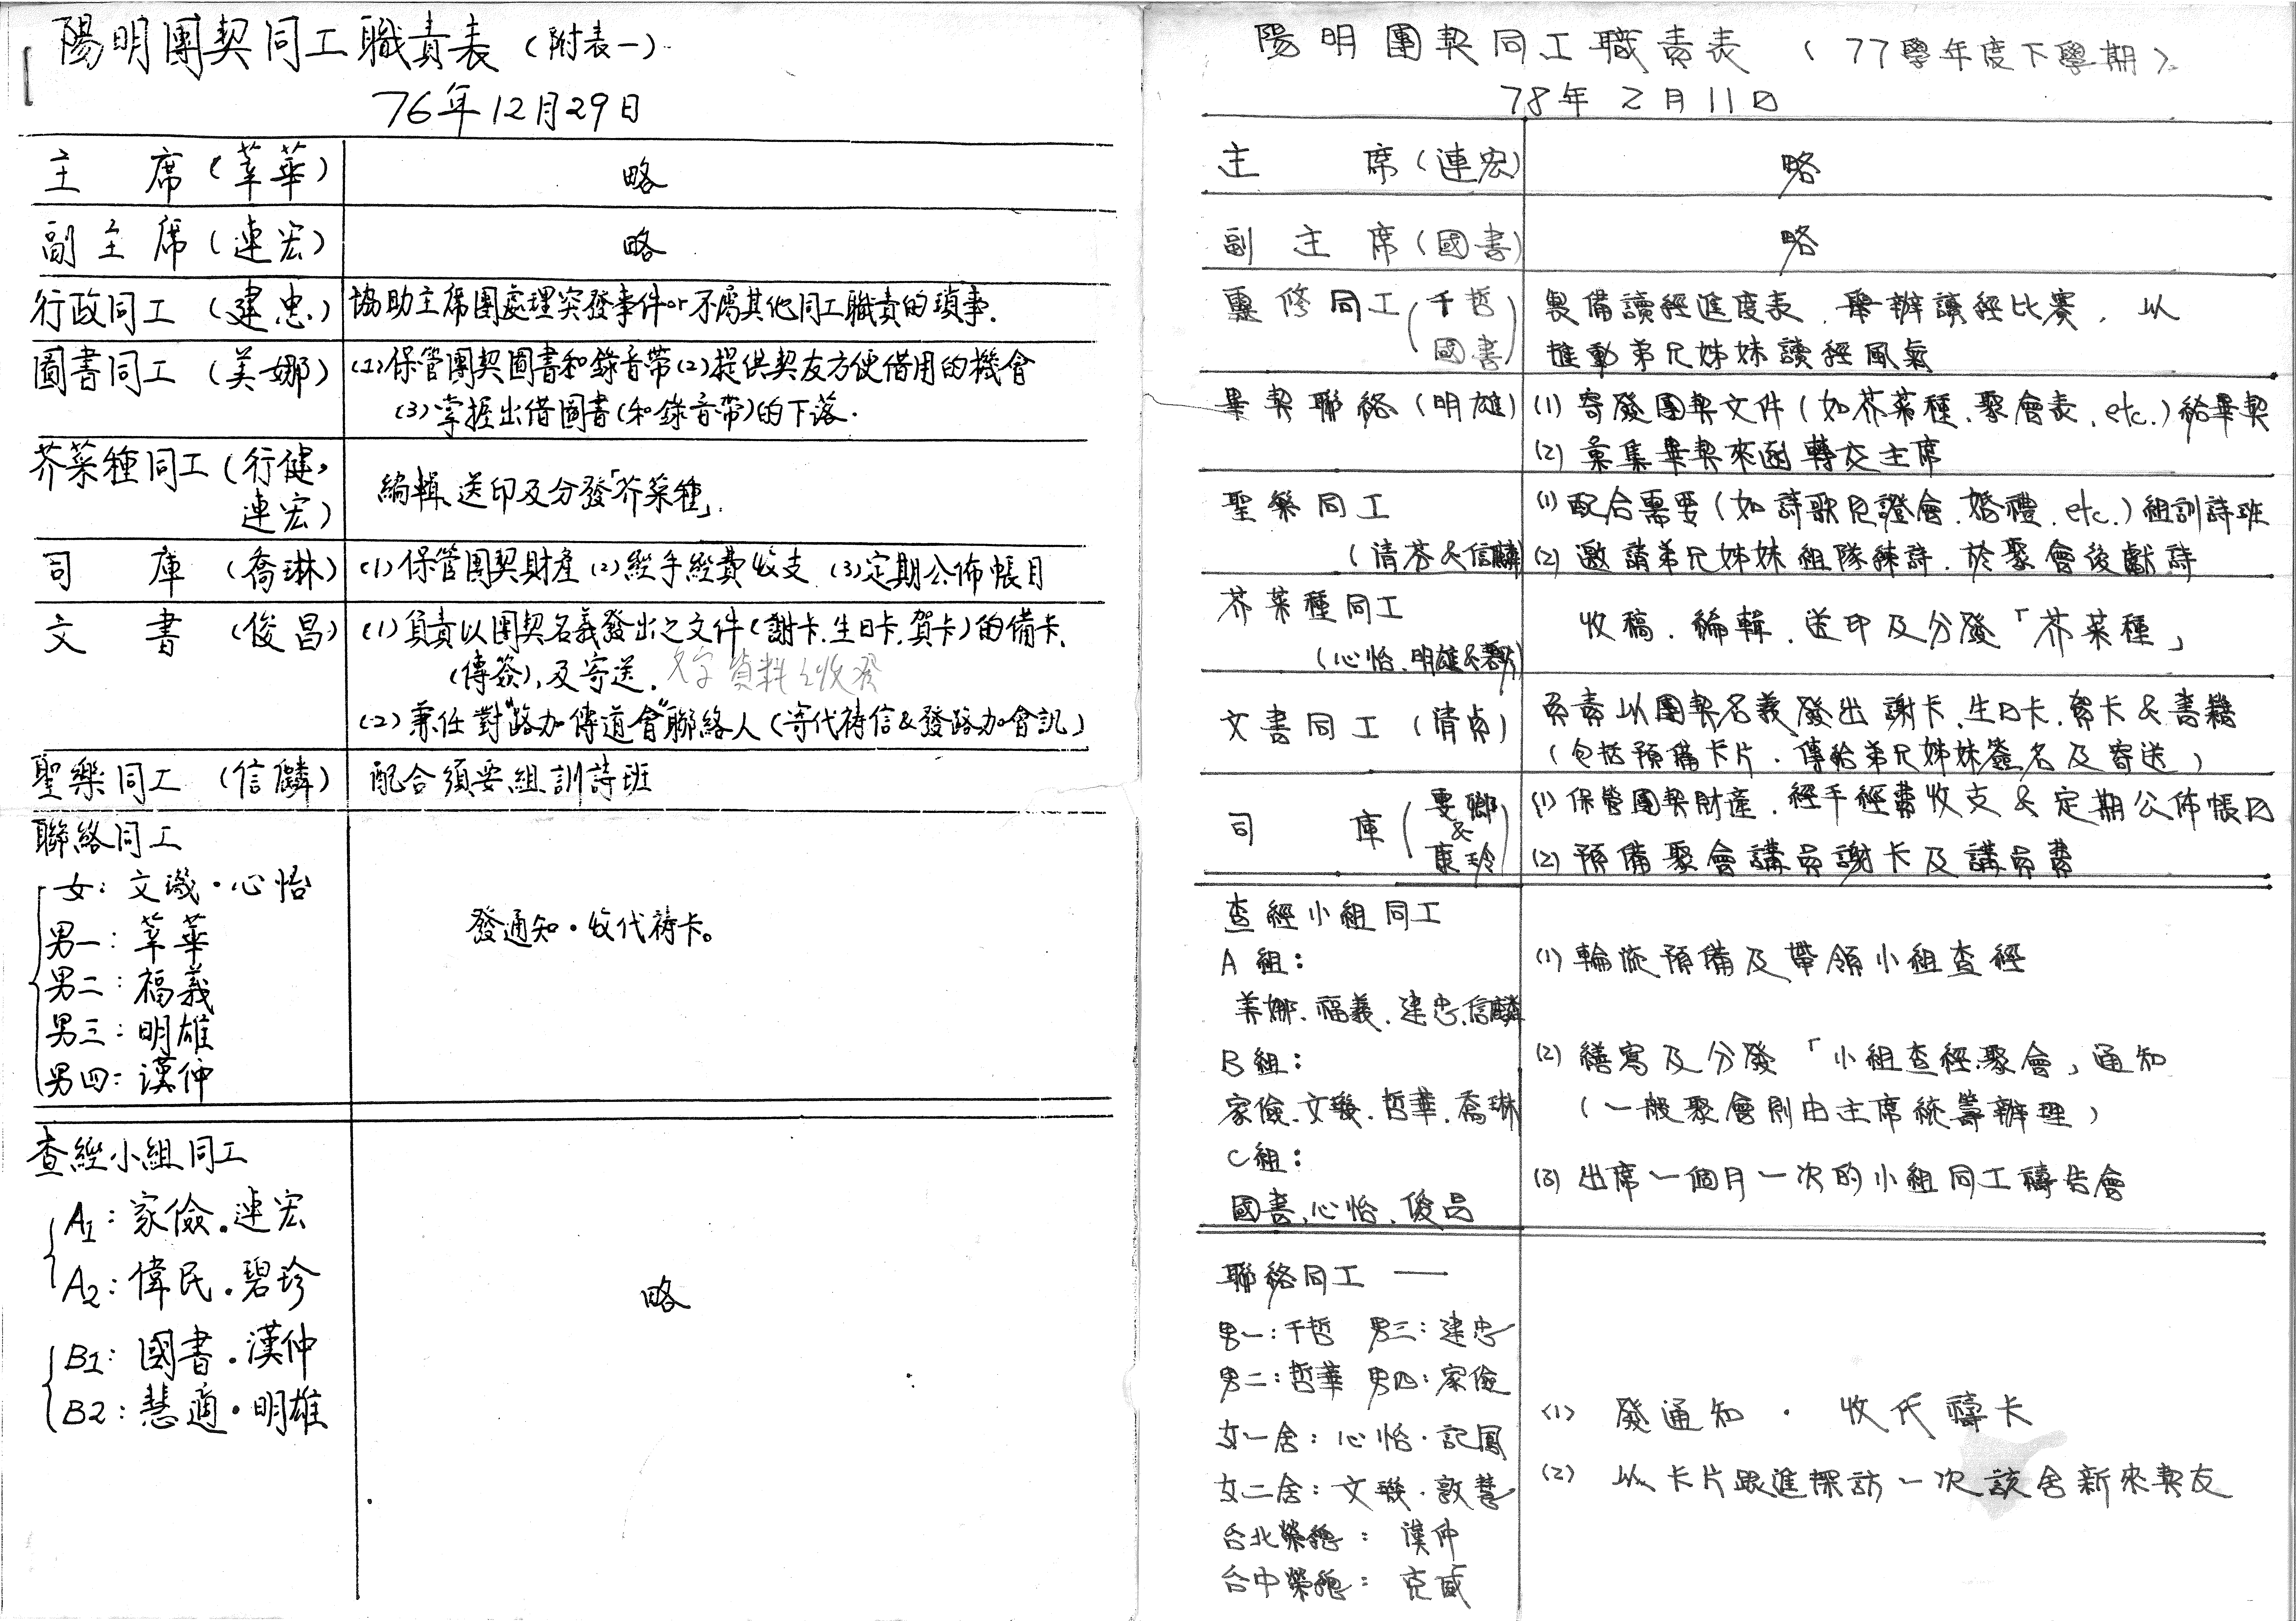 陽明團契同工職責表（附表一）
76年12月29日
主 席（莘華） 略
副主席（連宏） 略
行政同工（建忠） 協助主席團處理突發事件or不屬其他同工職責的瑣事.
圖書同工（美娜） (1)保管團契圖書和錄音帶(2)提供契友方便借用的機會
(3)掌握出借圖書(和錄音帶)的下落.
芥菜種同工（行健,
連宏） 編輯、送印及分發「芥菜種」.
司 庫（喬琳） (1)保管團契財產 (2)經手經費收支 (3)定期公佈帳目
文 書（俊昌） (1)負責以團契名義發出之文件(謝卡.生日卡.賀卡)的備卡、
(傳簽),及寄送. 文字資料之收發
(2)兼任對"路加傳道會"聯絡人(寄代禱信&發路加會訊)
聖樂同工（信麟） 配合須要組訓詩班
聯絡同工
女：文璣・心怡
男一：莘華
發通知・收代禱卡。
男二：福義
男三：明雄
男四：漢仲
查經小組同工
A1：家儉.連宏
A2：偉民.碧珍
略
B1：國書.漢仲
B2：慧適・明雄
陽明團契同工職責表（77學年度下學期）
78年2月11日
主 席（連宏） 略
副主席（國書） 略
靈修同工（千哲
國書） 製備讀經進度表、舉辦讀經比賽、以
推動弟兄姊妹讀經風氣
畢契聯絡（明雄） (1) 寄發團契文件(如芥菜種、聚會表、etc.)給畢契
(2) 彙集畢契來函轉交主席
聖樂同工 (1) 配合需要(如詩歌見證會、婚禮、etc.)組訓詩班
（清芬&信麟） (2) 邀請弟兄姊妹組隊練詩、於聚會後獻詩
芥菜種同工 收稿、編輯、送印及分發「芥菜種」
（心怡、明雄&
文書同工（清貞） 負責以團契名義發出謝卡、生日卡、賀卡&書籍
(包括預備卡片、傳給弟兄姊妹簽名及寄送)
司 庫 &
康玲 (1) 保管團契財產、經手經費收支&定期公佈帳目
(2) 預備聚會講員謝卡及講員費
查經小組同工
A組：
(1) 輪流預備及帶領小組查經
美娜、福義、建忠、信麟
B組：
(2) 繕寫及分發「小組查經聚會」通知
家儉、文璣、哲華、喬琳
(一般聚會則由主席統籌辦理)
C組：
(3) 出席一個月一次的小組同工禱告會
國書、心怡、俊昌
聯絡同工 ——
男一：千哲 男三：建忠
男二：哲華 男四：家儉
(1) 發通知・收代禱卡
女一舍：心怡・記鳳
(2) 以卡片跟進探訪一次該舍新來契友
女二舍：文璣・敦慧
台北榮總：漢仲
台中榮總：克威